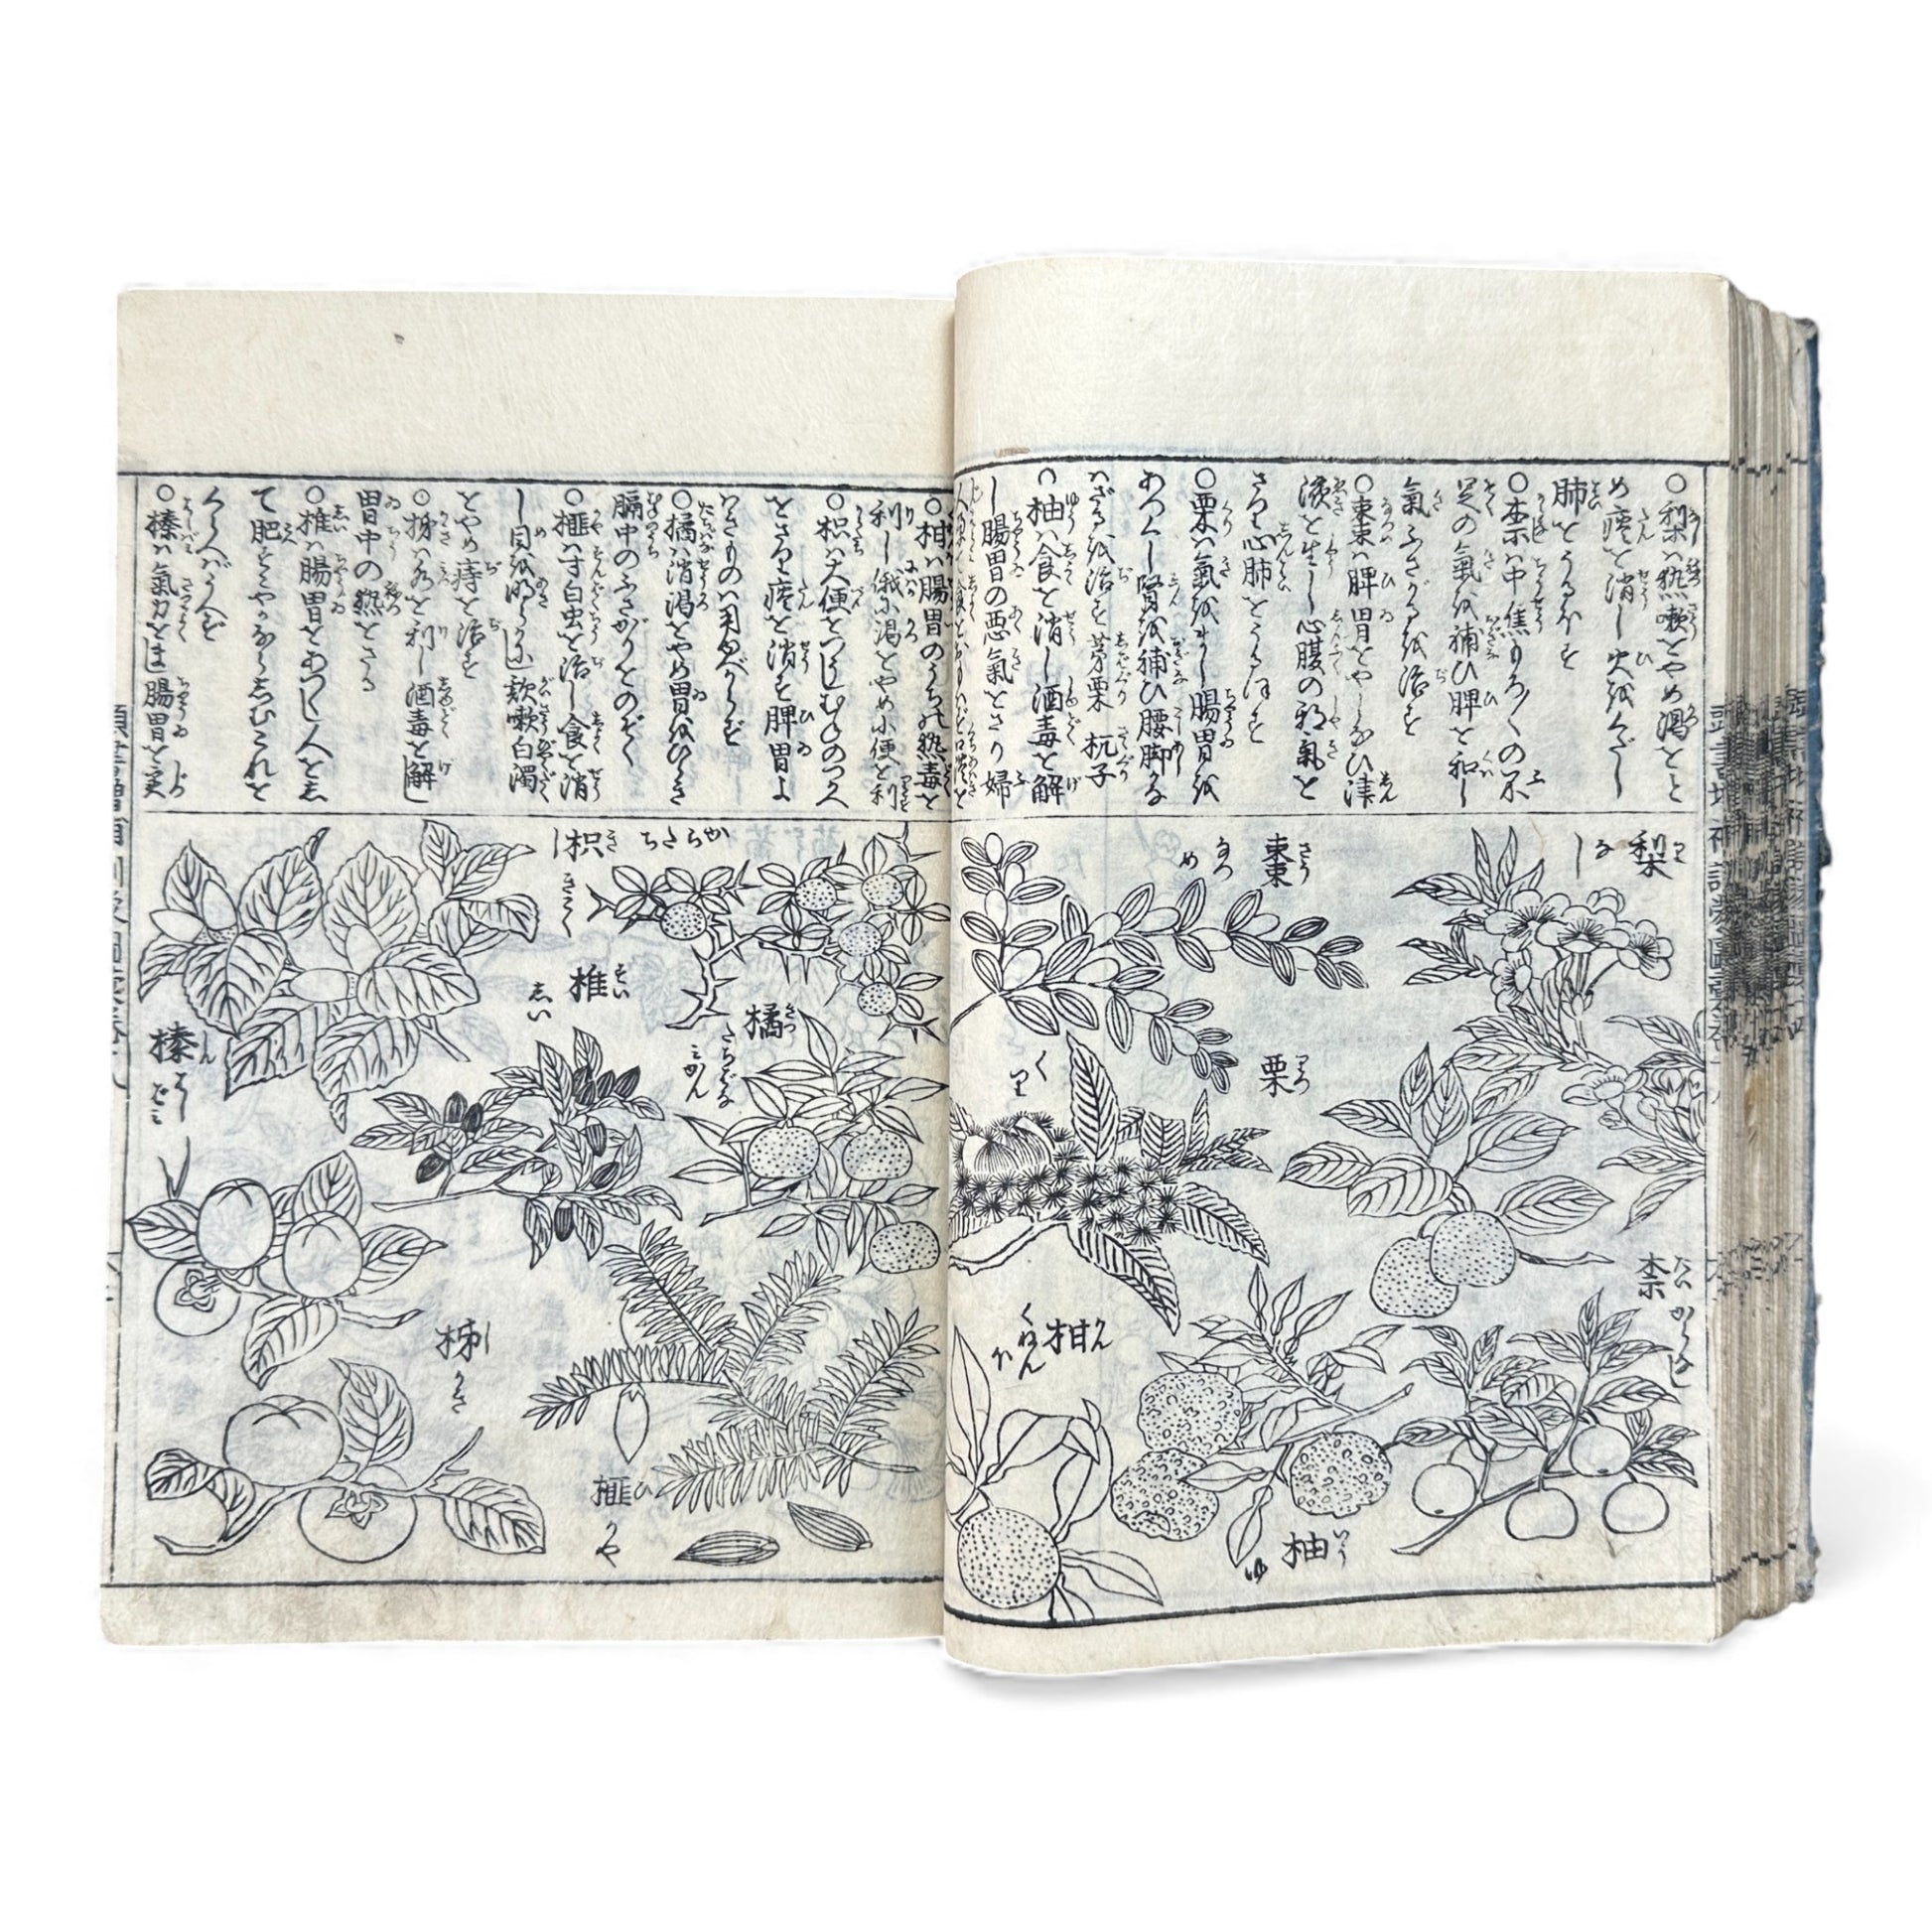 ○梨ハ熱嗽をやめ渇をと
め痰を消し火をくだし
肺をうるほす
○柰ハ中焦もろ〳〵の不
足の氣を補ひ脾を和し
氣ふさがるを治す
○棗ハ脾胃をやしなひ津
液を生し心腹の邪氣を
さり心肺をうるほす
○栗ハ氣をまし腸胃を
あつくし腎を補ひ腰脚な
へざるを治す 茅栗 杭子
○柚ハ食を消し酒毒を解
し腸胃の悪氣をさり婦
○柑ハ腸胃のうちの熱毒を
利し俄に渇をやめ小便を利
○枳ハ大便をつうじむねのつかへ
をさり痰を消す脾胃よ
はきものハ用ゆべからず
○橘ハ消渇をやめ胃をひらき
膈中のふさがりをのぞく
○榧ハ寸白虫を治し食を消
し目を明らかにし欬嗽白濁
をやめ痔を治す
○柹ハ水を利し酒毒を解し
胃中の熱をさる
○椎ハ腸胃をあつくし人を
て肥すこやかならしむこれを
くらへバうへず
○榛ハ氣力をまし腸胃を実
梨 り なし
棗 さう なつめ
栗 りつ くり
柰 だい からなし
柑 かん くねんぼ
柚 いう ゆ
枳 き からたち きこく
橘 きつ たちばな みかん
椎 すい しい
榛 しん はしばみ
柹 し かき
榧 ひ かや